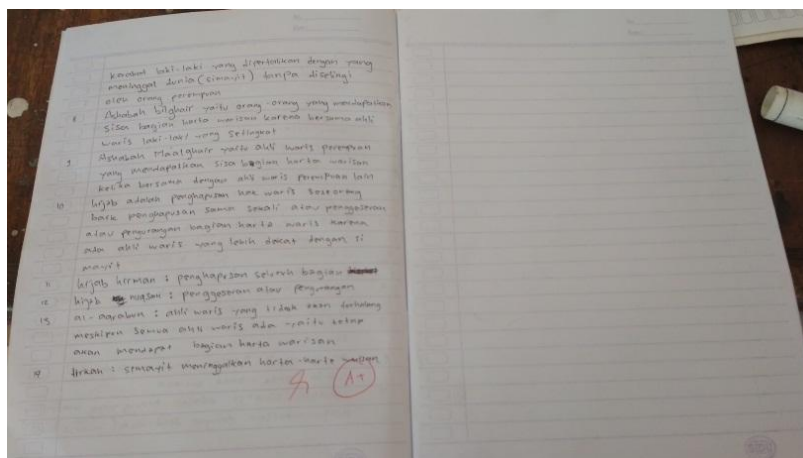 kerabat laki-laki yang dipertalikan dengan yang
meninggal dunia (simayit) tanpa diselingi
oleh orang perempuan
8 Ashabah bilghair yaitu orang-orang yang mendapatkan
sisa bagian harta warisan karena bersama ahli
waris laki-laki yang setingkat
9 Ashabah Maalghair yaitu ahli waris perempuan
yang mendapatkan sisa bagian harta warisan
ketika bersama dengan ahli waris perempuan lain
10 hijab adalah penghapusan hak waris seseorang
baik penghapusan sama sekali atau penggeseran
atau pengurangan bagian harta waris karena
ada ahli waris yang lebih dekat dengan si
mayit
11 hijab hirman : penghapusan seluruh bagian
12 hijab nuqsan : penggeseran atau pengurangan
13 al-aqrabun : ahli waris yang tidak akan terhalang
meskipun semua ahli waris ada yaitu tetap
akan mendapat bagian harta warisan
14 tirkah : simayit meninggalkan harta-harta warisan
A+